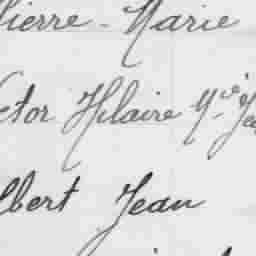 Pierre-Marie
ctor Hilaire Mie
lbert Jean